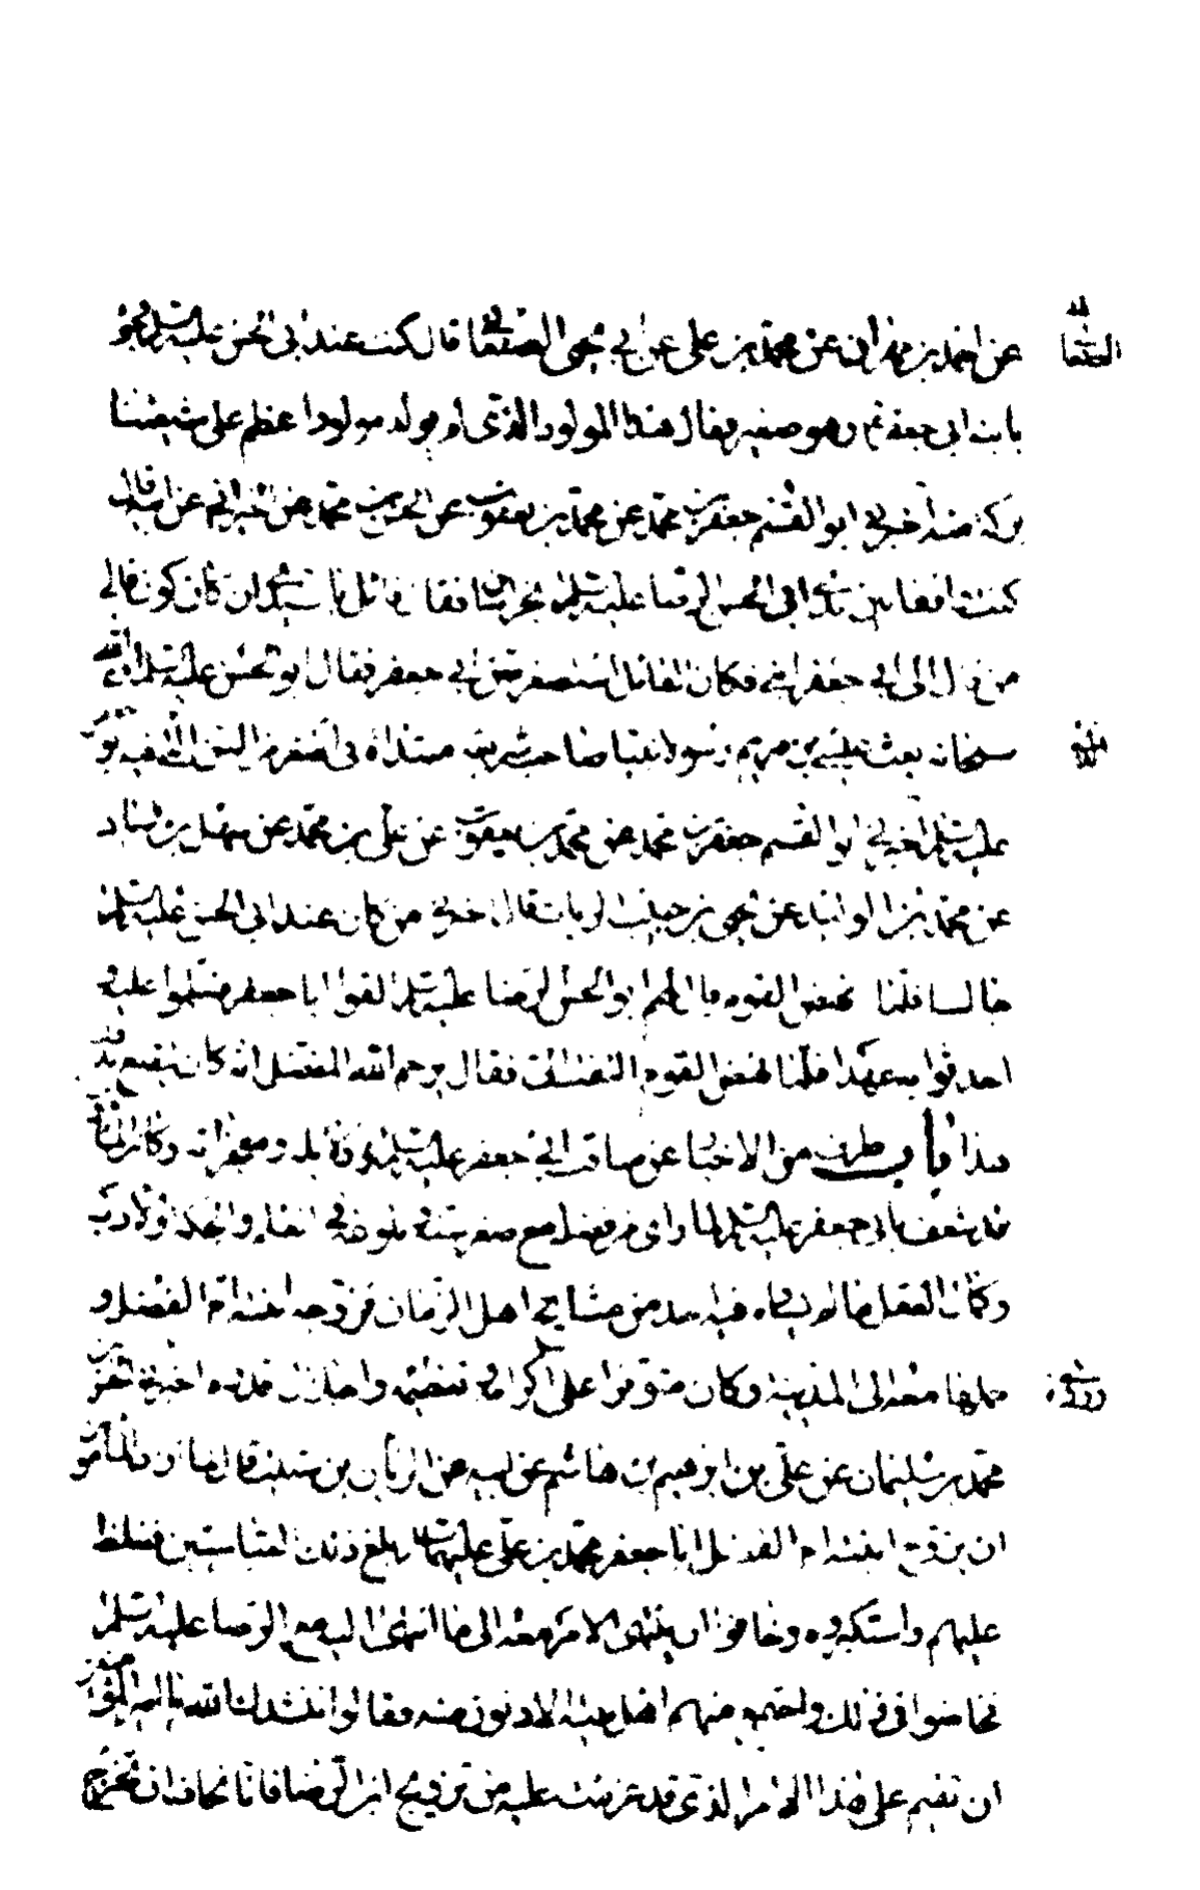 عن احمد بن مهران عن محمد بن علي عن ابي يحيى الصنعاني قال كنت عند ابي الحسن عليه السلم فجئ
بابنه ابي جعفر ع وهو صغير فقال هذا المولود الذي لم يولد مولود اعظم على شيعتنا
بركة منه اخبرني ابو القسم جعفر بن محمد عن محمد بن يعقوب عن الحسين بن محمد عن الخيراني عن ابيه قال
كنت واقفا بين يدي ابي الحسن الرضا عليه السلم بخراسان فقال قائل يا سيدي ان كان كون فالى
من قال الى ابي جعفر ابني فكان القائل استصغر سن ابي جعفر فقال ابو الحسن عليه السلم ان الله
سبحانه بعث عيسى بن مريم رسولا نبيا صاحب شريعة مبتداة في اصغر من السن الذي فيه ابو جعفر
عليه السلم اخبرني ابو القسم جعفر بن محمد عن محمد بن يعقوب عن علي بن محمد عن سهل بن زياد
عن محمد بن الوليد عن يحيى بن حبيب الزيات قال اخبرني من كان عند ابي الحسن عليه السلم
جالسا فلما نهض القوم قال لهم ابو الحسن الرضا عليه السلم القوا ابا جعفر فسلموا عليه
واحدثوا به عهدا فلما نهض القوم التفت الي فقال يرحم الله المفضل انه كان ليقنع بدون
هذا باب طرف من الاخبار عن مناقب ابي جعفر عليه السلم ودلائله ومعجزاته وكان المأمون
قد شغف بابي جعفر عليه السلم لما راى من فضله مع صغر سنه وبلوغه في العلم والحكمة والادب
وكمال العقل ما لم يساوه فيه احد من مشايخ اهل الزمان فزوجه ابنته ام الفضل و
حملها معه الى المدينة وكان متوفرا على اكرامه وتعظيمه واجلال قدره اخبرني الحسن بن
محمد بن سليمان عن علي بن ابراهيم بن هاشم عن ابيه عن الريان بن شبيب قال لما اراد المأمون
ان يزوج ابنته ام الفضل ابا جعفر محمد بن علي عليهما السلم بلغ ذلك العباسيين فغلظ
عليهم واستكبروه وخافوا ان ينتهي الامر معه الى ما انتهى اليه مع الرضا عليه السلم
فخاضوا في ذلك واجتمع منهم اهل بيته الادنون منه فقالوا ننشدك الله يا امير المؤمنين
ان تقيم على هذا الامر الذي قد عزمت عليه من تزويج ابن الرضا فانا نخاف ان تخرج